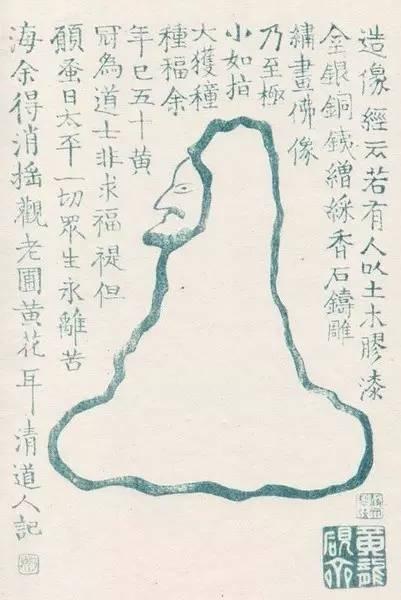 造像經云若有人以土木膠漆
金銀銅鐵繒綵香石鑄雕
繡畫佛像
乃至極
小如指
大獲種
種福余
年已五十黃
冠為道士非求福禔但
願蚤日太平一切眾生永離苦
海余得消搖觀老圃黃花耳清道人記
黃龍
硯